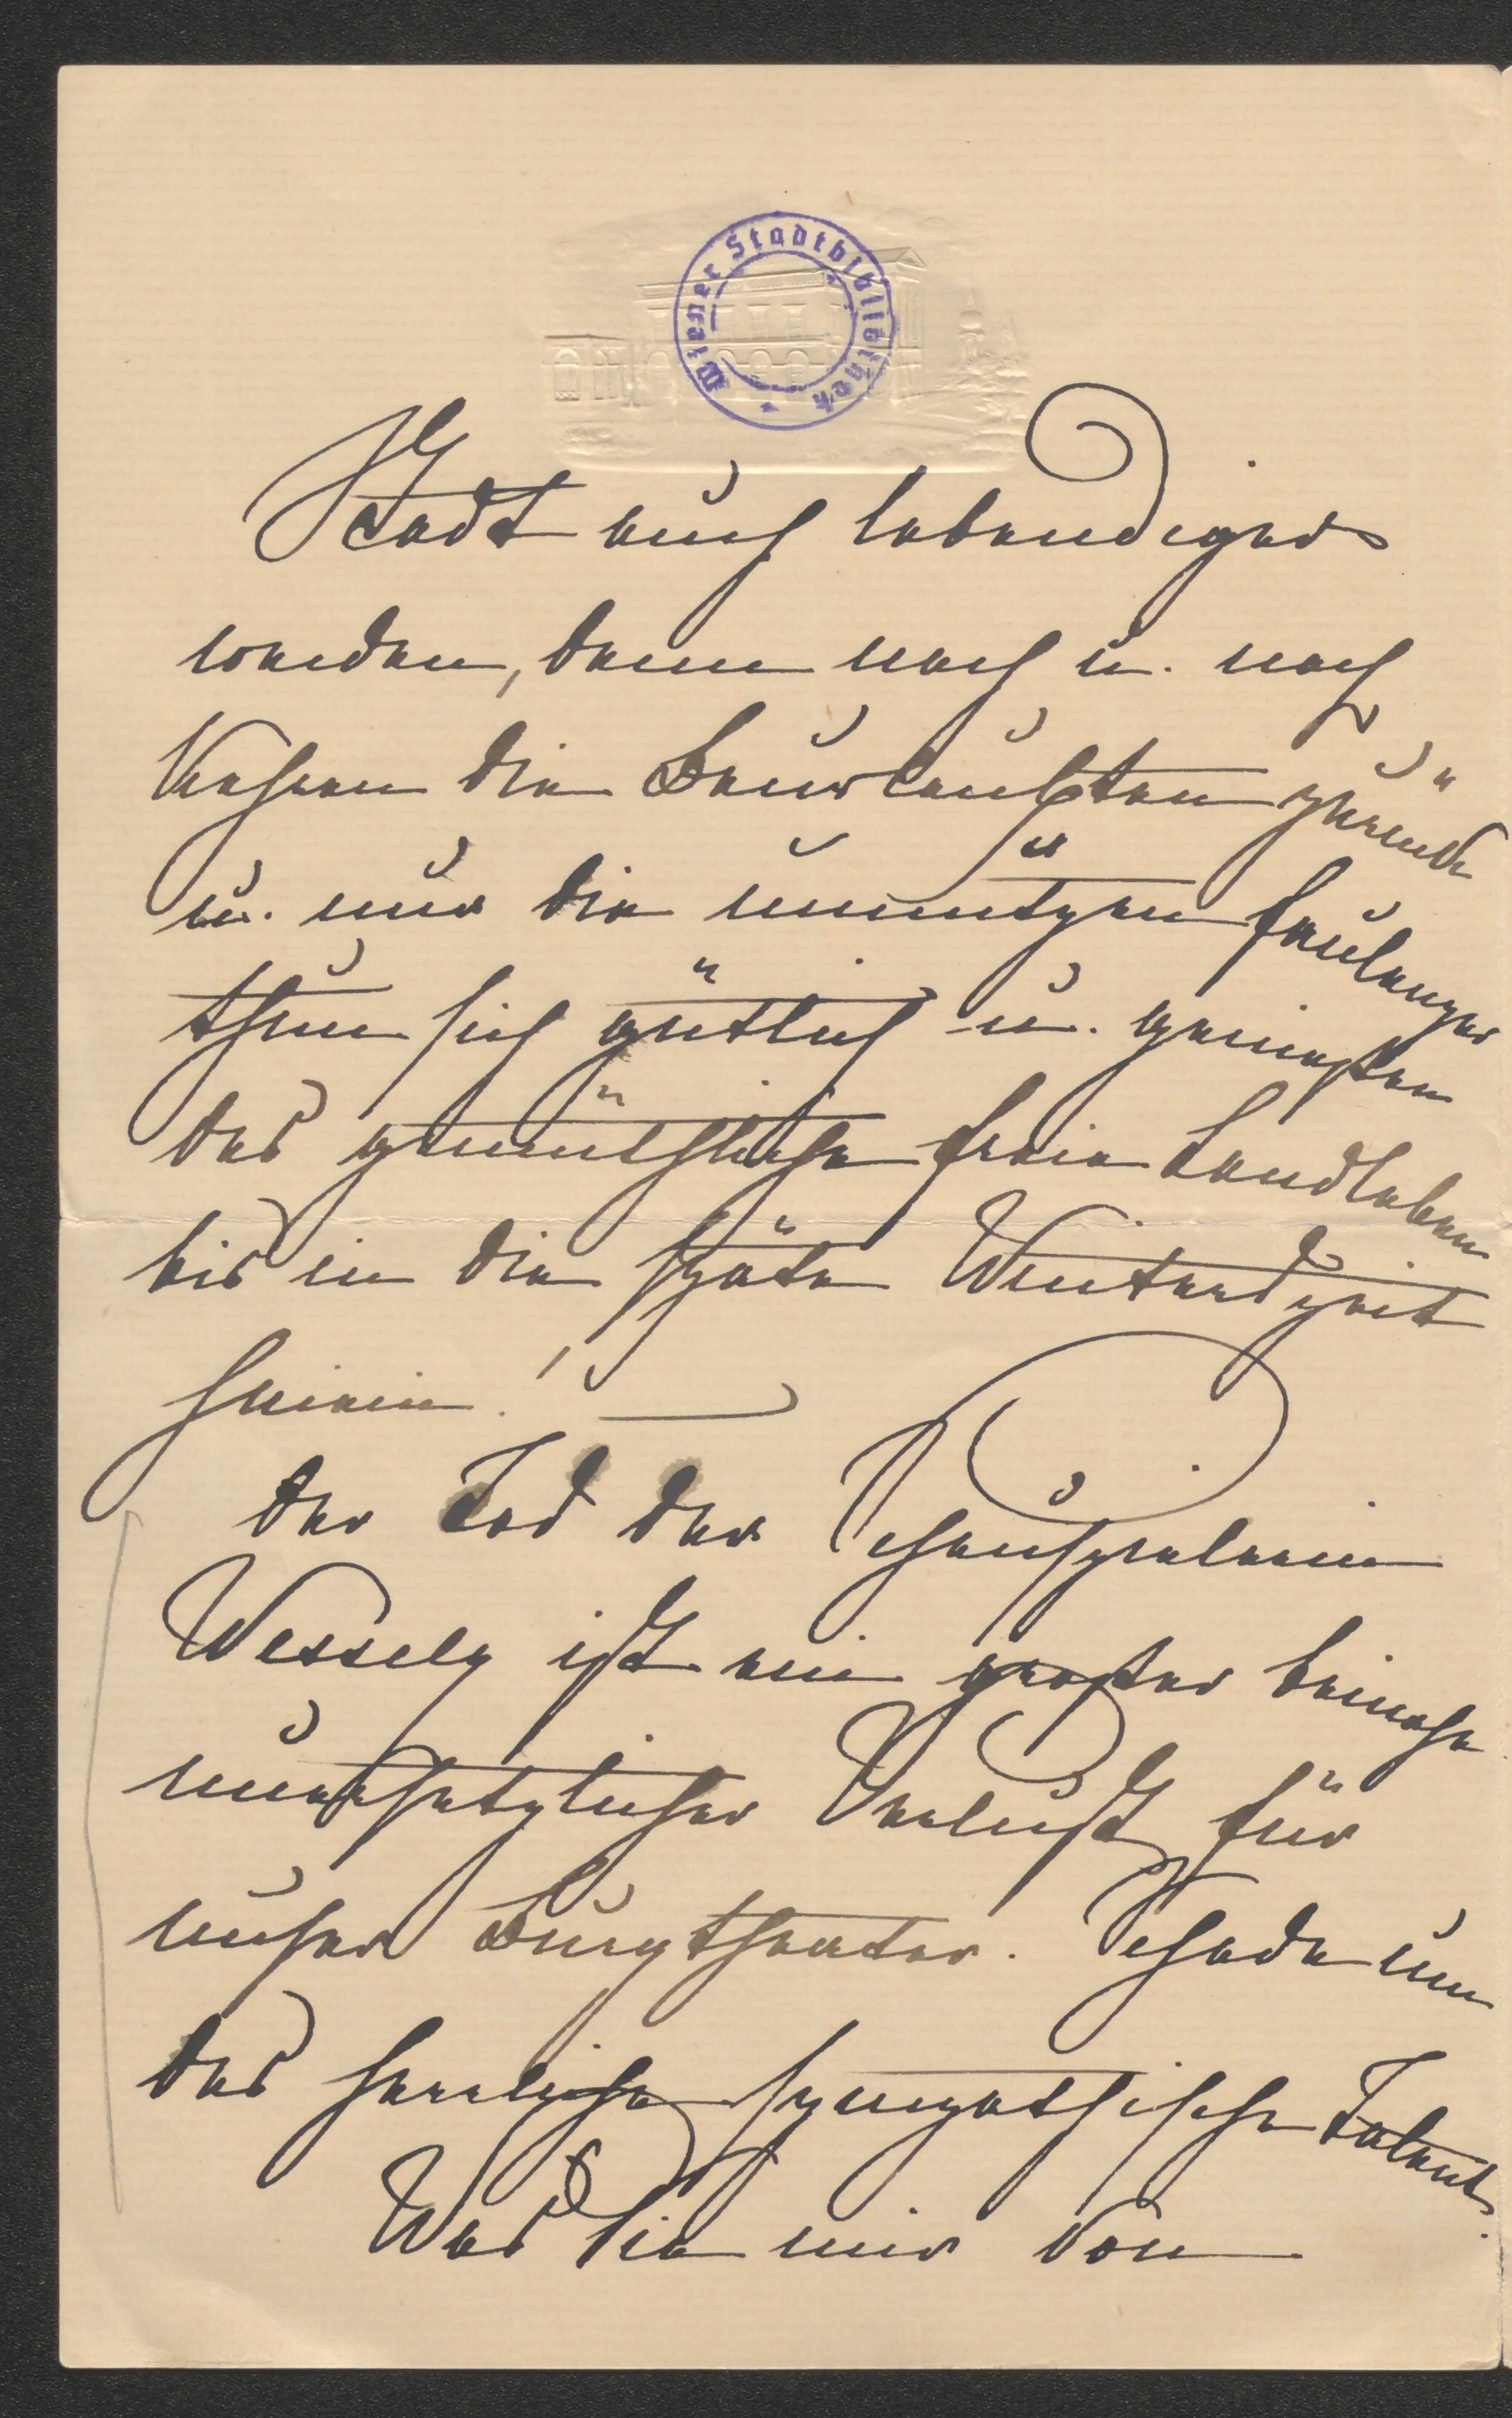 Wiener Stadtbibliothek
Stadt auch lebendiger
werden, denn nach u. nach
kehren die Beurlaubten zurück
u. nur die unnützen Faulenzer
thun sich gütlich u. genießen
das gemüthliche freie Landleben
bis in die späte Winterszeit
hinein! —
Der Tod der Schauspielerin
Wessely ist ein großer beinahe
unersetzlicher Verlust für
unser Burgtheater. Schade um
das herrliche sympathische Talent.
Was Sie mir von